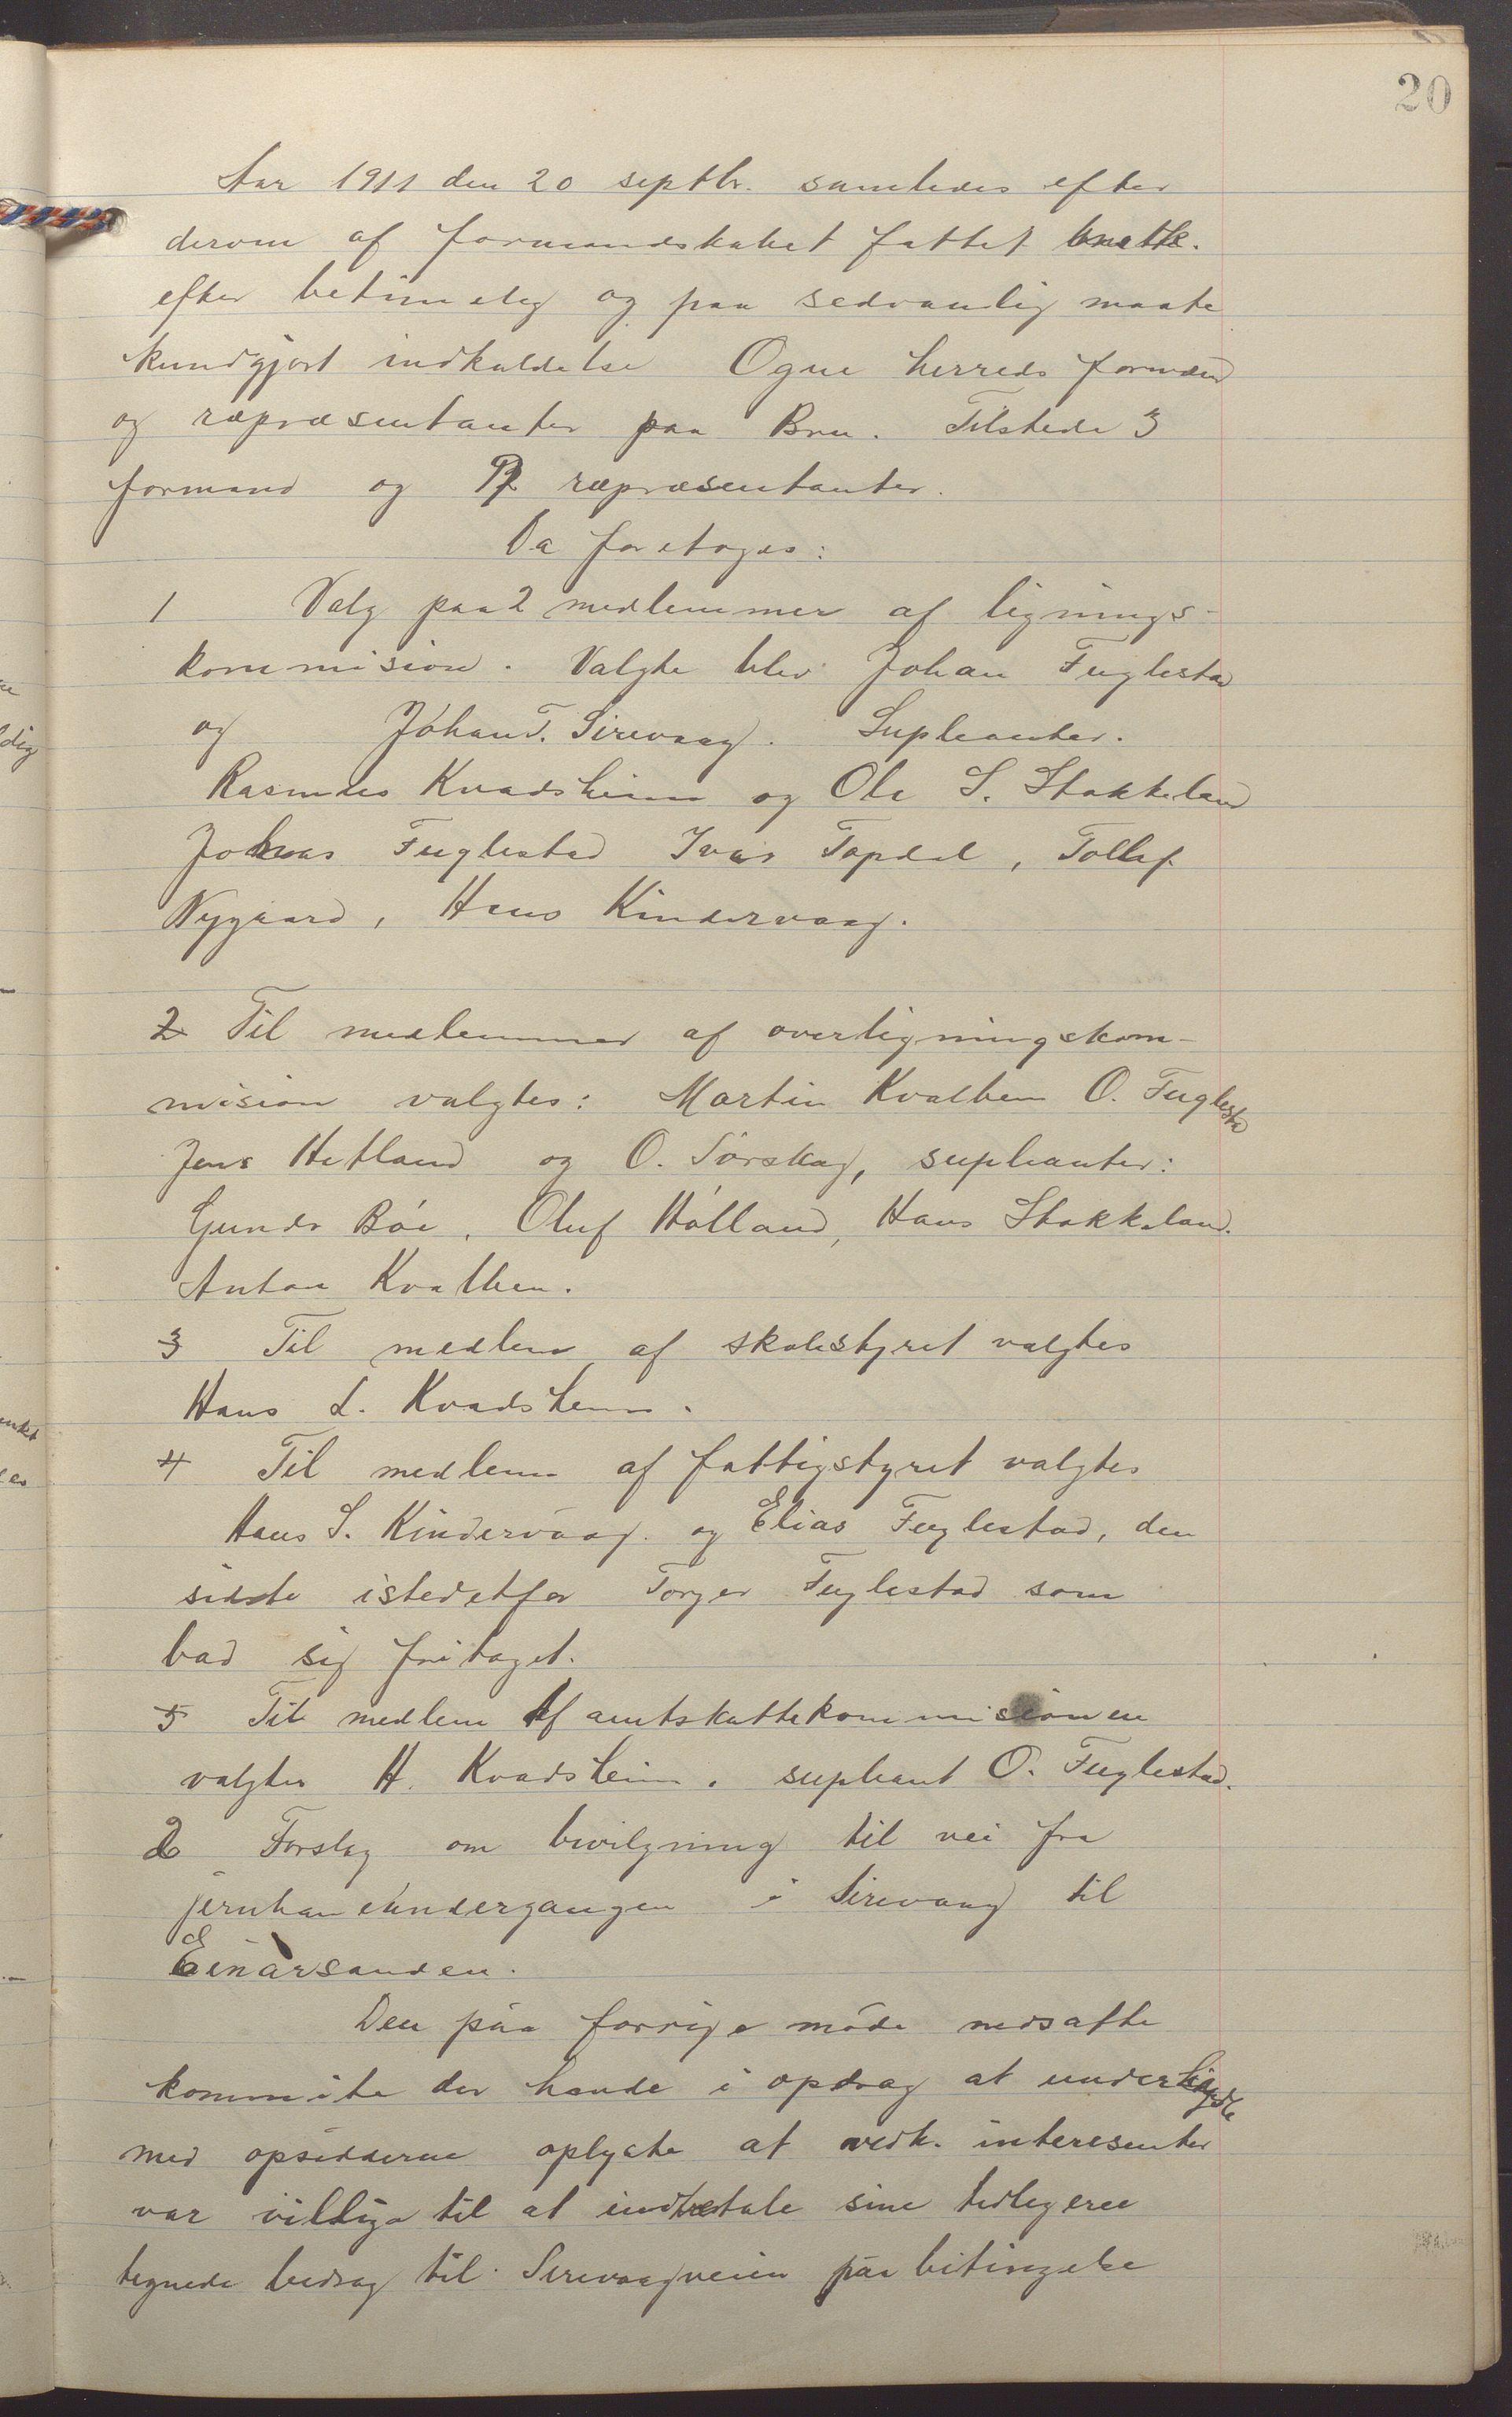 20
Aar 1911 den 20 septbr. samledes efter
derom af formandskabet fattet
efter betimelig og paa sedvanlig maate
kundgjort indkaldelse Ogne herreds formænd
og repræsentanter paa Bru. Tilstede 3
formænd og repræsentanter.
Da foretoges:
1 Valg paa 2 medlemmer af lignings-
kommision. Valgte blev Johan Fuglestad
og Johan T. Sirevaag. Supleanter.
Rasmus Kvadsheim og Ole S. Stokkeland
Johnas Fuglestad Ivar Tapdal, Tollef
Nygaard, Hans Kindervaag.
2 Til medlemmer af overligningskom-
mision valgtes: Martin Kvalben O. Fuglestad
Jens Hetland og O. Sørskog, supleanter:
Gunder Bøe, Oluf Hølland, Hans Stokkeland.
Anton Kvalben.
3 Til medlem af skolestyret valgtes
Hans L. Kvadsheim.
4 Til medlem af fattigstyret valgtes
Hans S. Kindervaag og Elias Fuglestad, den
sidste istedetfor Torger Fuglestad som
bad sig fritaget.
5 Til medlem af amtskattekommisionen
valgtes H. Kvadsheim. supleant O. Fuglestad.
2 Forslag om bevilgning til vei fra
jernbaneundergangen i Sirevaag til
Einarsanden.
Den paa forrige møde nedsatte
kommite der havde i opdrag at underhandle
med opsidderne oplyste at vedk. interesenter
var villige til at indbetale sine tidligere
tegnede bedrag til Sirevaagveien paa betingelse